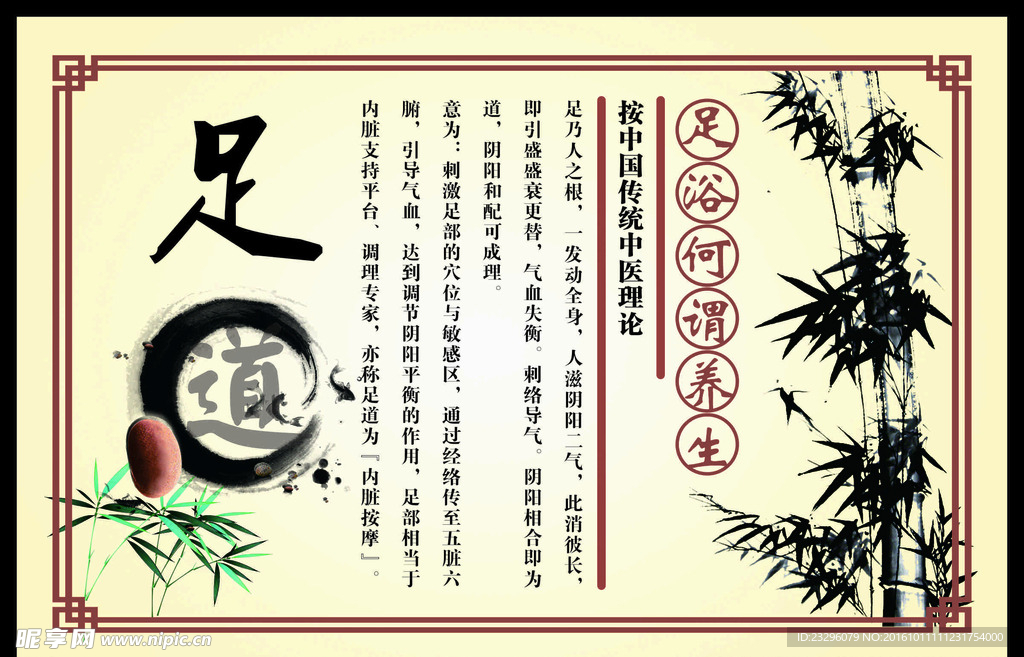 足浴何谓养生
按中国传统中医理论
足乃人之根，一发动全身，人滋阴阳二气，此消彼长，
即引盛盛衰更替，气血失衡。刺络导气。阴阳相合即为
道，阴阳和配可成理。
意为：刺激足部的穴位与敏感区，通过经络传至五脏六
腑，引导气血，达到调节阴阳平衡的作用，足部相当于
内脏支持平台、调理专家，亦称足道为『内脏按摩』。
足
道
昵享网 www.nipic.cn
ID:23296079 NO:20161011111231754000